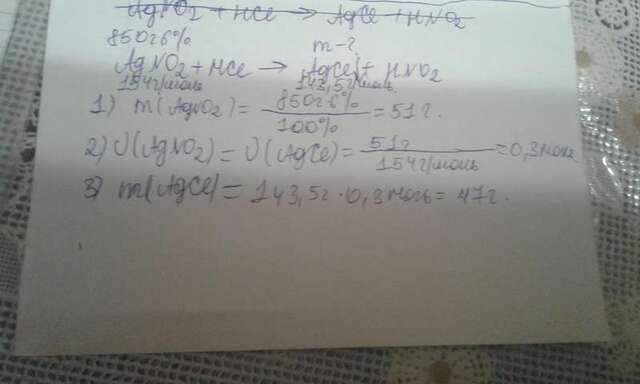 AgNO2 + HCl → AgCl + HNO2
850г 6% m-?
AgNO2 + HCl → AgCl↓ + HNO2
154г/моль 143,5г/моль
1) m(AgNO2) = 850г·6% / 100% = 51г.
2) υ(AgNO2) = υ(AgCl) = 51г / 154г/моль = 0,3моль
3) m(AgCl) = 143,5г · 0,3моль = 47г.